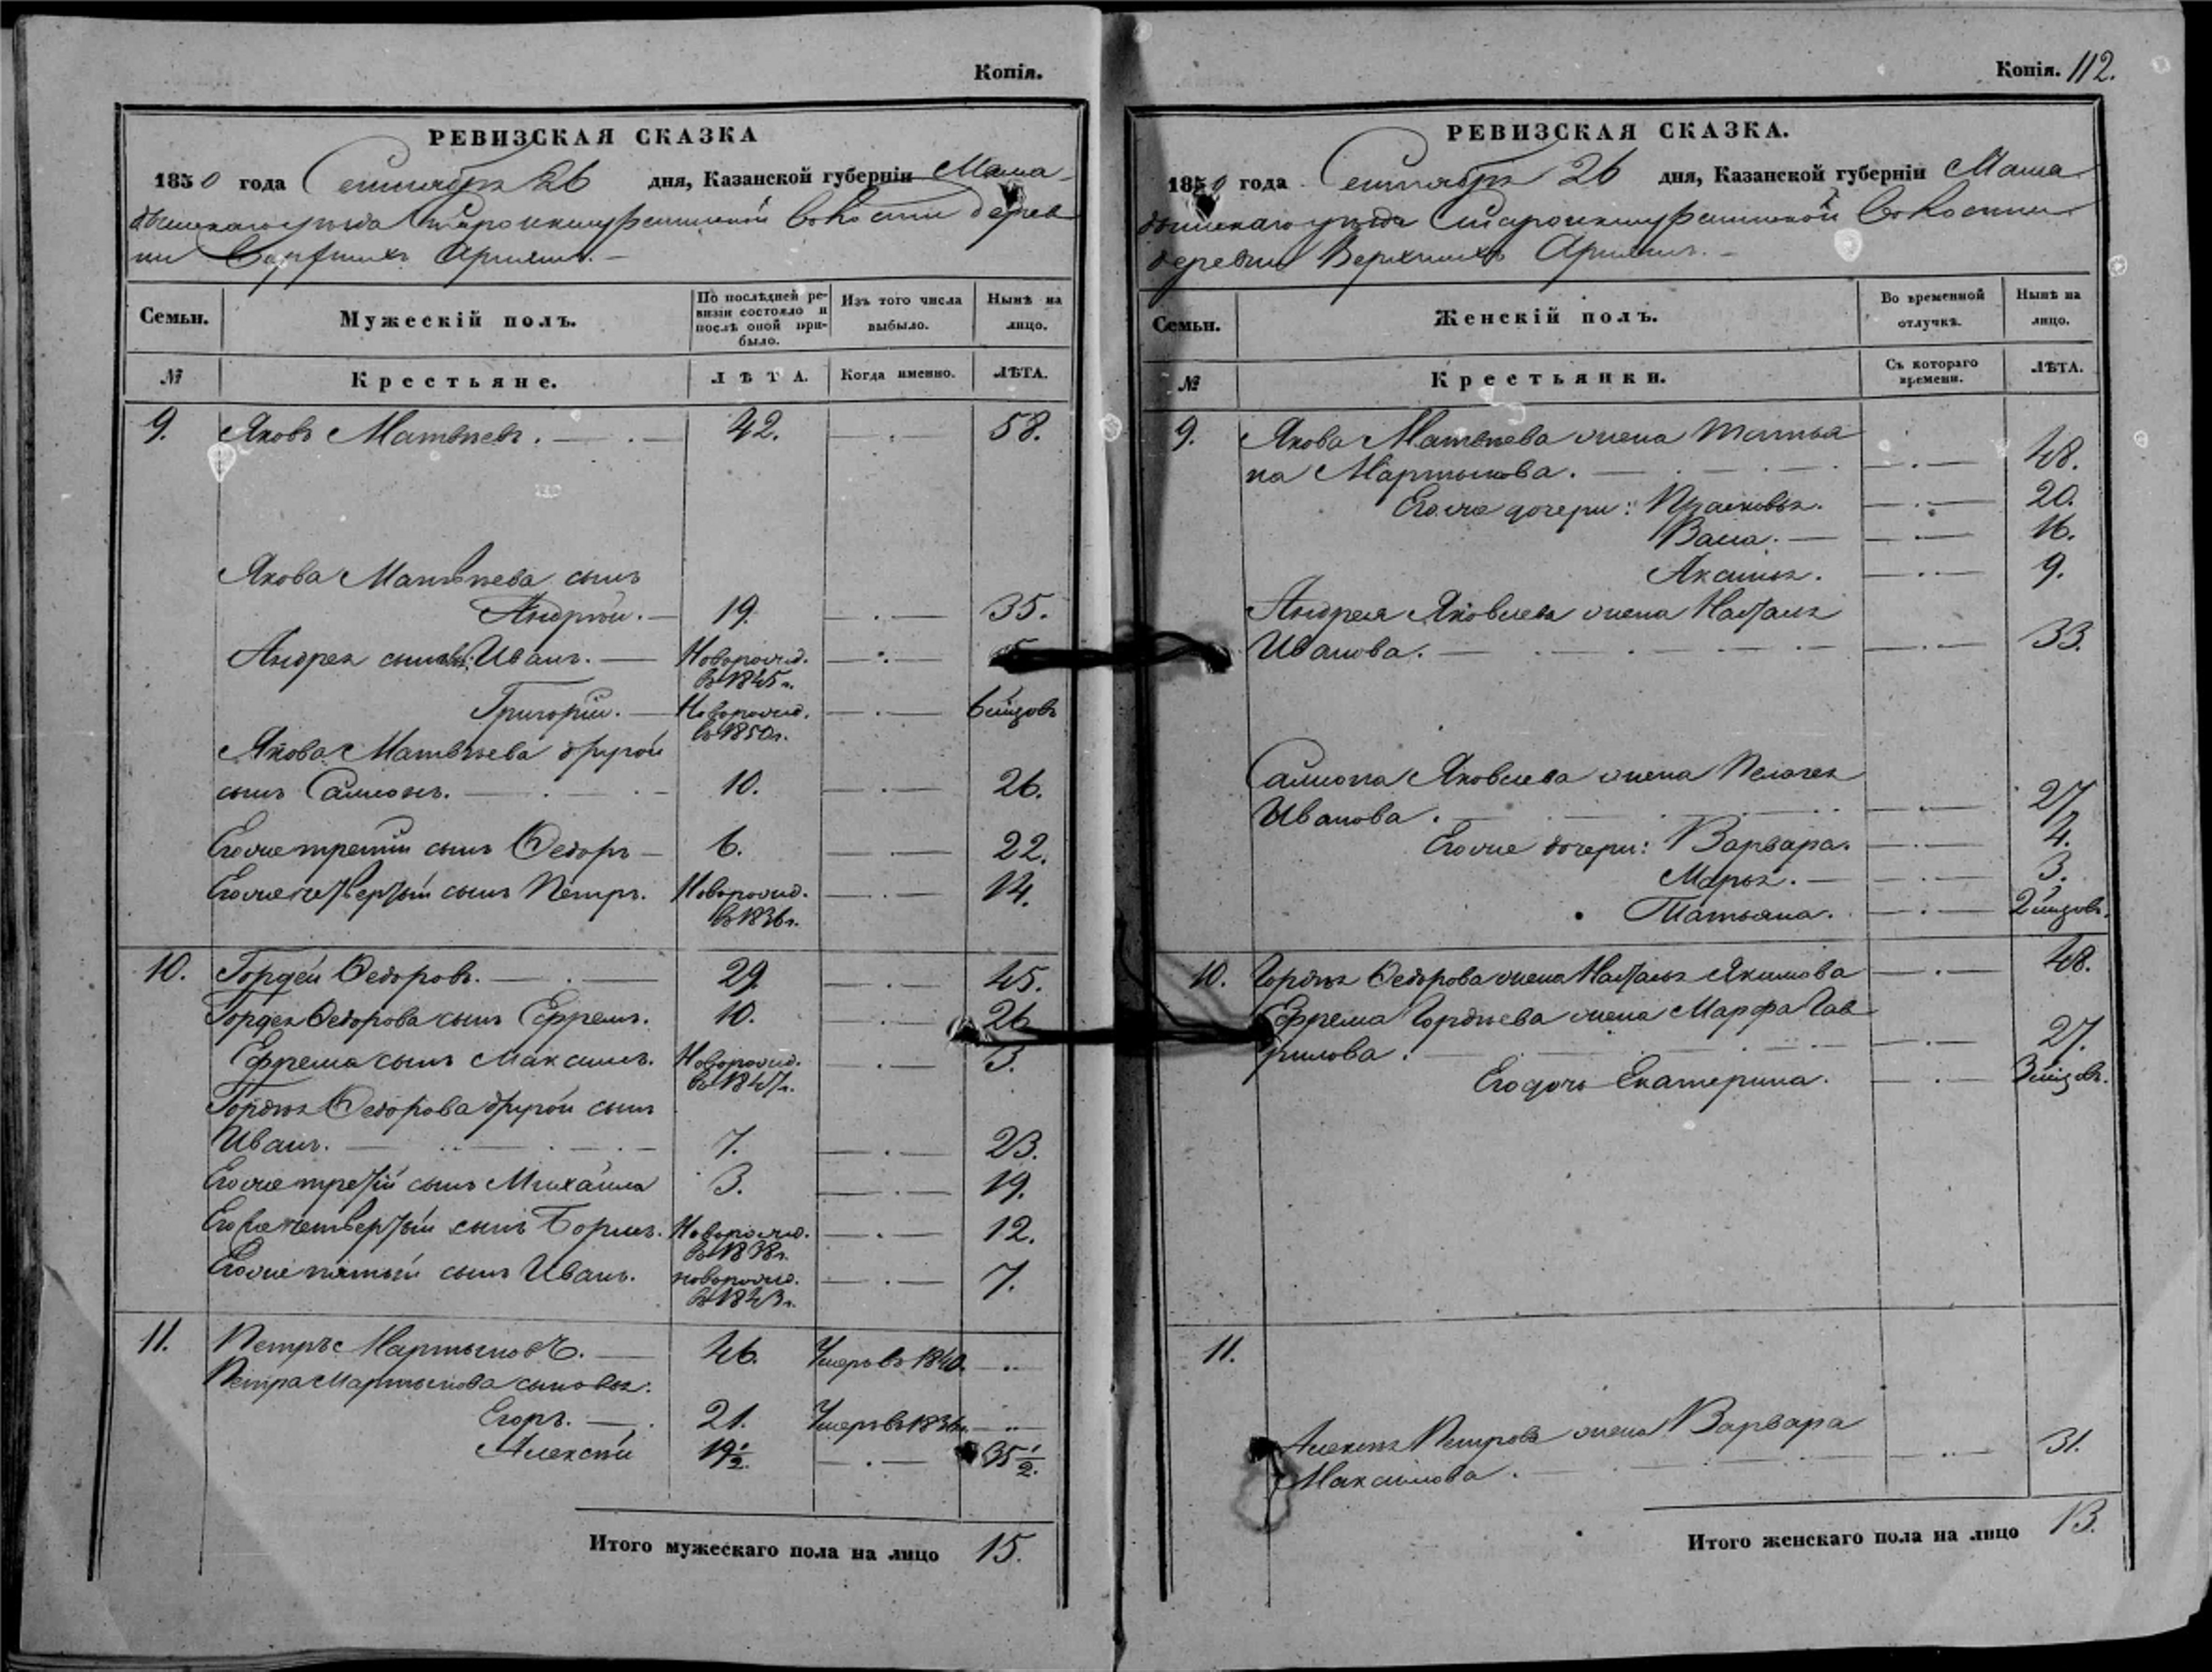 Копія.
РЕВИЗСКАЯ СКАЗКА
1850 года Сентября 26 дня, Казанской губерніи Мама-
дышскаго уѣзда Староикшурминской волости дерев
ни Верхнихъ Аришъ. —
Семьи.
Мужескій полъ.
По послѣдней ре-
визіи состояло и
послѣ оной при-
было.
Изъ того числа
выбыло.
Нынѣ на
лицо.
№
Крестьяне.
ЛѢТА.
Когда именно.
ЛѢТА.
9. Яковъ Матвѣевъ. 42. 58.
Якова Матвѣева сынъ
Андрей. 19. 35.
Андрея сыновья: Иванъ. Новорожд. 5
въ 1845 г.
Григорій. Новорожд. 6 мѣсцовъ
въ 1850 г.
Якова Матвѣева другой
сынъ Самсонъ. 10. 26.
Его же третій сынъ Ѳедоръ 6. 22.
Его же четвертый сынъ Петръ. Новорожд. 14.
въ 1836 г.
10. Гордей Ѳедоровъ. 29. 45.
Гордея Ѳедорова сынъ Ефремъ. 10. 26
Ефрема сынъ Максимъ. Новорожд. 3.
въ 1847 г.
Гордѣя Ѳедорова другой сынъ
Иванъ. 7. 23.
Его же третій сынъ Михаила 3. 19.
Его же четвертый сынъ Борисъ. Новорожд. 12.
въ 1838 г.
Его же пятый сынъ Иванъ. новорожд. 7.
въ 1843 г.
11. Петръ Мартыновъ. 46. Умеръ въ 1840.
Петра Мартынова сыновья:
Егоръ. 21. Умеръ въ 1836 г.
Алексѣй 19 1/2. 35 1/2.
Итого мужескаго пола на лицо 15.
Копія. 112.
РЕВИЗСКАЯ СКАЗКА.
1850 года Сентября 26 дня, Казанской губерніи Мама
дышскаго уѣзда Староикшурминской волости
деревни Верхнихъ Аришъ. —
Семьи.
Женскій полъ.
Во временной
отлучкѣ.
Нынѣ на
лицо.
№
Крестьянки.
Съ котораго
времени.
ЛѢТА.
9. Якова Матвѣева жена Татья
на Мартынова. 48.
Его же дочери: Прасковья. 20.
Васса. 16.
Аксинья. 9.
Андрея Яковлева жена Наталья
Иванова. 33.
Самсона Яковлева жена Пелагея
Иванова. 27.
Его же дочери: Варвара. 4.
Марья. 3.
Татьяна. 2 мѣсцовъ.
10. Гордѣя Ѳедорова жена Наталья Якимова 48.
Ефрема Гордѣева жена Марфа Гав
рилова. 27.
Его дочь Екатерина. 3 мѣсцовъ.
11.
Алексѣя Петрова жена Варвара
Максимова. 31.
Итого женскаго пола на лицо 13.